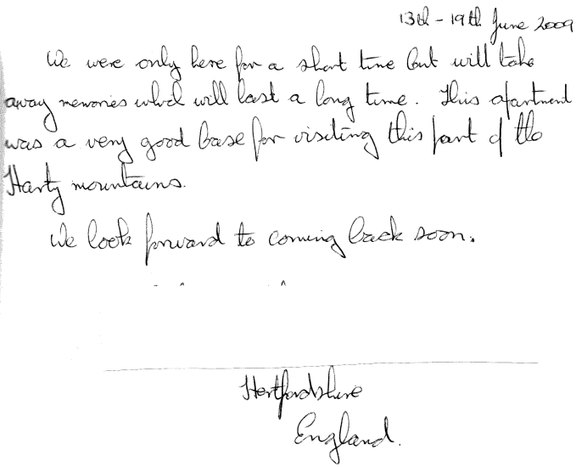 13th - 19th June 2009
We were only here for a short time but will take
away memories which will last a long time. This apartment
was a very good base for visiting this part of the
Hartz mountains.
We look forward to coming back soon.
Hertfordshire
England.